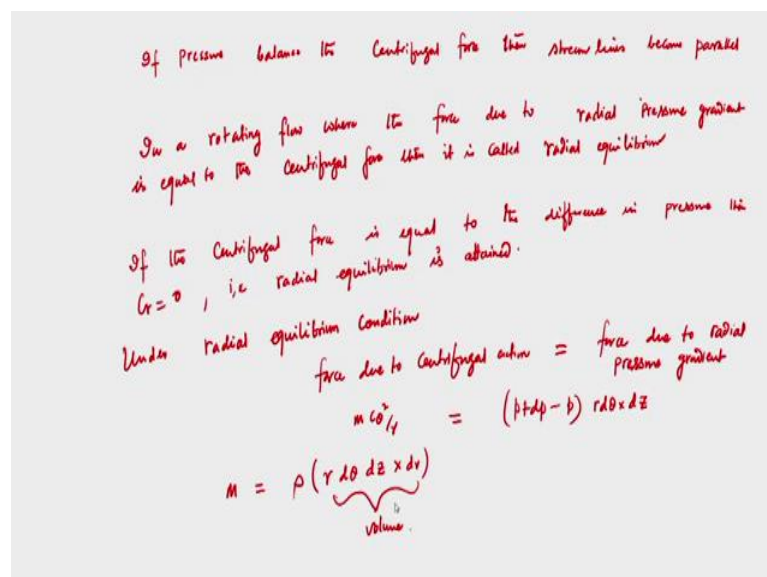 If pressure balance the Centrifugal force then stream lines become parallel
In a rotating flow where the force due to radial Pressure gradient
is equal to the Centrifugal force then it is called radial equilibrium
If the Centrifugal force is equal to the difference in pressure then
Cr = 0, i,e radial equilibrium is attained.
Under radial equilibrium Condition
force due to Centrifugal action = force due to radial
pressure gradient
m cθ²/r = (p+dp-p) rdθ×dz
m = ρ(r dθ dz × dr)
volume.